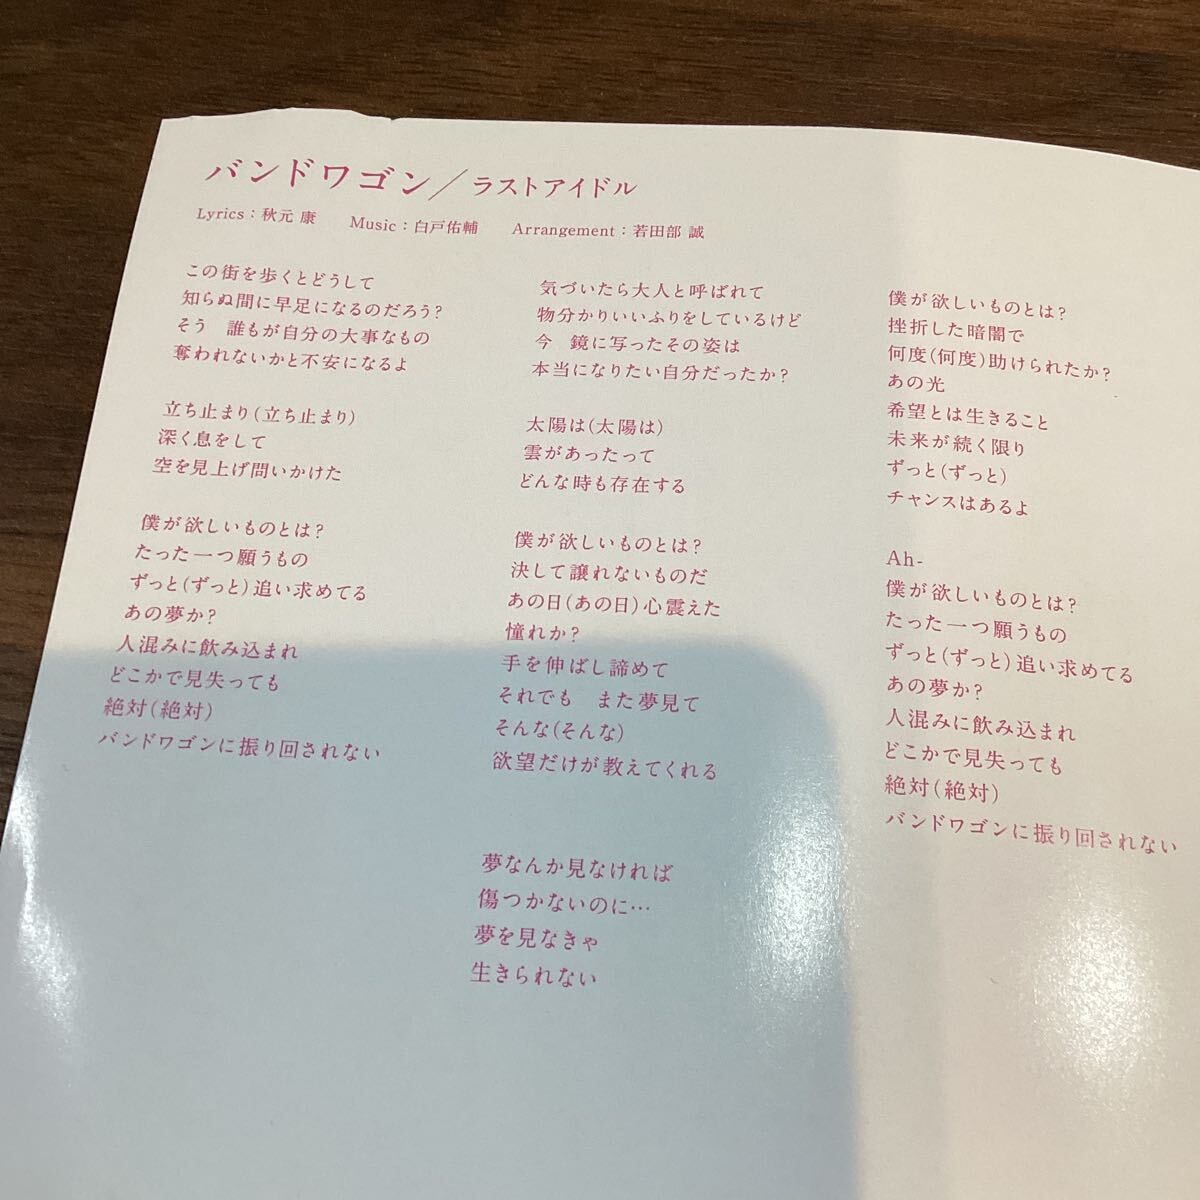 バンドワゴン／ラストアイドル
Lyrics：秋元 康　Music：白戸佑輔　Arrangement：若田部 誠
この街を歩くとどうして
知らぬ間に早足になるのだろう?
そう　誰もが自分の大事なもの
奪われないかと不安になるよ
立ち止まり(立ち止まり)
深く息をして
空を見上げ問いかけた
僕が欲しいものとは?
たった一つ願うもの
ずっと(ずっと)追い求めてる
あの夢か?
人混みに飲み込まれ
どこかで見失っても
絶対(絶対)
バンドワゴンに振り回されない
気づいたら大人と呼ばれて
物分かりいいふりをしているけど
今　鏡に写ったその姿は
本当になりたい自分だったか?
太陽は(太陽は)
雲があったって
どんな時も存在する
僕が欲しいものとは?
決して譲れないものだ
あの日(あの日)心震えた
憧れか?
手を伸ばし諦めて
それでも　また夢見て
そんな(そんな)
欲望だけが教えてくれる
夢なんか見なければ
傷つかないのに…
夢を見なきゃ
生きられない
僕が欲しいものとは?
挫折した暗闇で
何度(何度)助けられたか?
あの光
希望とは生きること
未来が続く限り
ずっと(ずっと)
チャンスはあるよ
Ah-
僕が欲しいものとは?
たった一つ願うもの
ずっと(ずっと)追い求めてる
あの夢か?
人混みに飲み込まれ
どこかで見失っても
絶対(絶対)
バンドワゴンに振り回されない